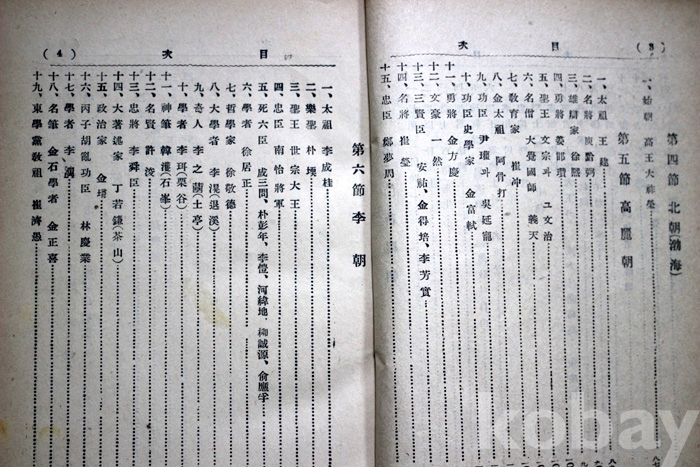 (3) 目 次
第四節 北朝(渤海)
一、始祖 高王大祚榮
第五節 高麗朝
一、太祖 王建
二、名將 庾黔弼
三、雄辯家 徐熙
四、勇將 姜邯瓚
五、聖王 文宗과 그文治
六、名僧 大覺國師 義天
七、敎育家 崔冲
八、金太祖 阿骨打
九、功臣 尹瓘과 吳延寵
十、功臣史學家 金富軾
十一、勇將 金方慶
十二、文豪 一然
十三、三賢臣 安祐、金得培、李芳實
十四、名將 崔瑩
十五、忠臣 鄭夢周
目 次 (4)
第六節 李朝
一、太祖 李成桂
二、樂聖 朴堧
三、聖王 世宗大王
四、忠臣 南怡將軍
五、死六臣 成三問、朴彭年、李愷、河緯地、柳誠源、俞應孚
六、學者 徐居正
七、哲學家 徐敬德
八、大學者 李滉(退溪)
九、奇人 李之菡(土亭)
十、學者 李珥(栗谷)
十一、神筆 韓濩(石峯)
十二、名賢 許浚
十三、忠將 李舜臣
十四、大著述家 丁若鏞(茶山)
十五、政治家 金堉
十六、丙子胡亂功臣 林慶業
十七、學者 李瀷
十八、名筆 金石學者 金正喜
十九、東學黨敎祖 崔濟愚
kobay